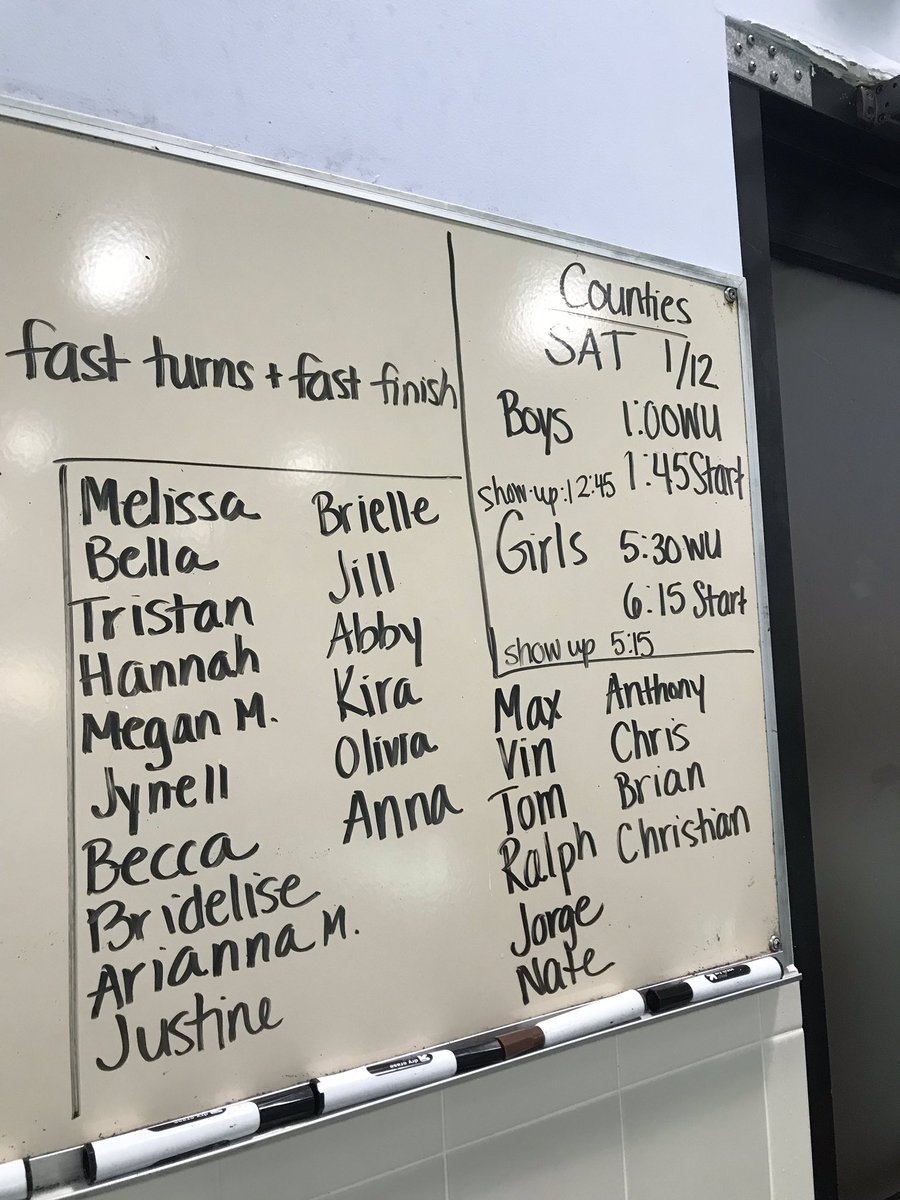 fast turns + fast finish
Melissa
Bella
Tristan
Hannah
Megan M.
Jynell
Becca
Bridelise
Arianna M.
Justine
Brielle
Jill
Abby
Kira
Olivia
Anna
Counties
SAT 1/12
Boys 1:00 WU
1:45 Start
show-up: 12:45
Girls 5:30 WU
6:15 Start
show up 5:15
Max
Vin
Tom
Ralph
Jorge
Nate
Anthony
Chris
Brian
Christian
dry erase